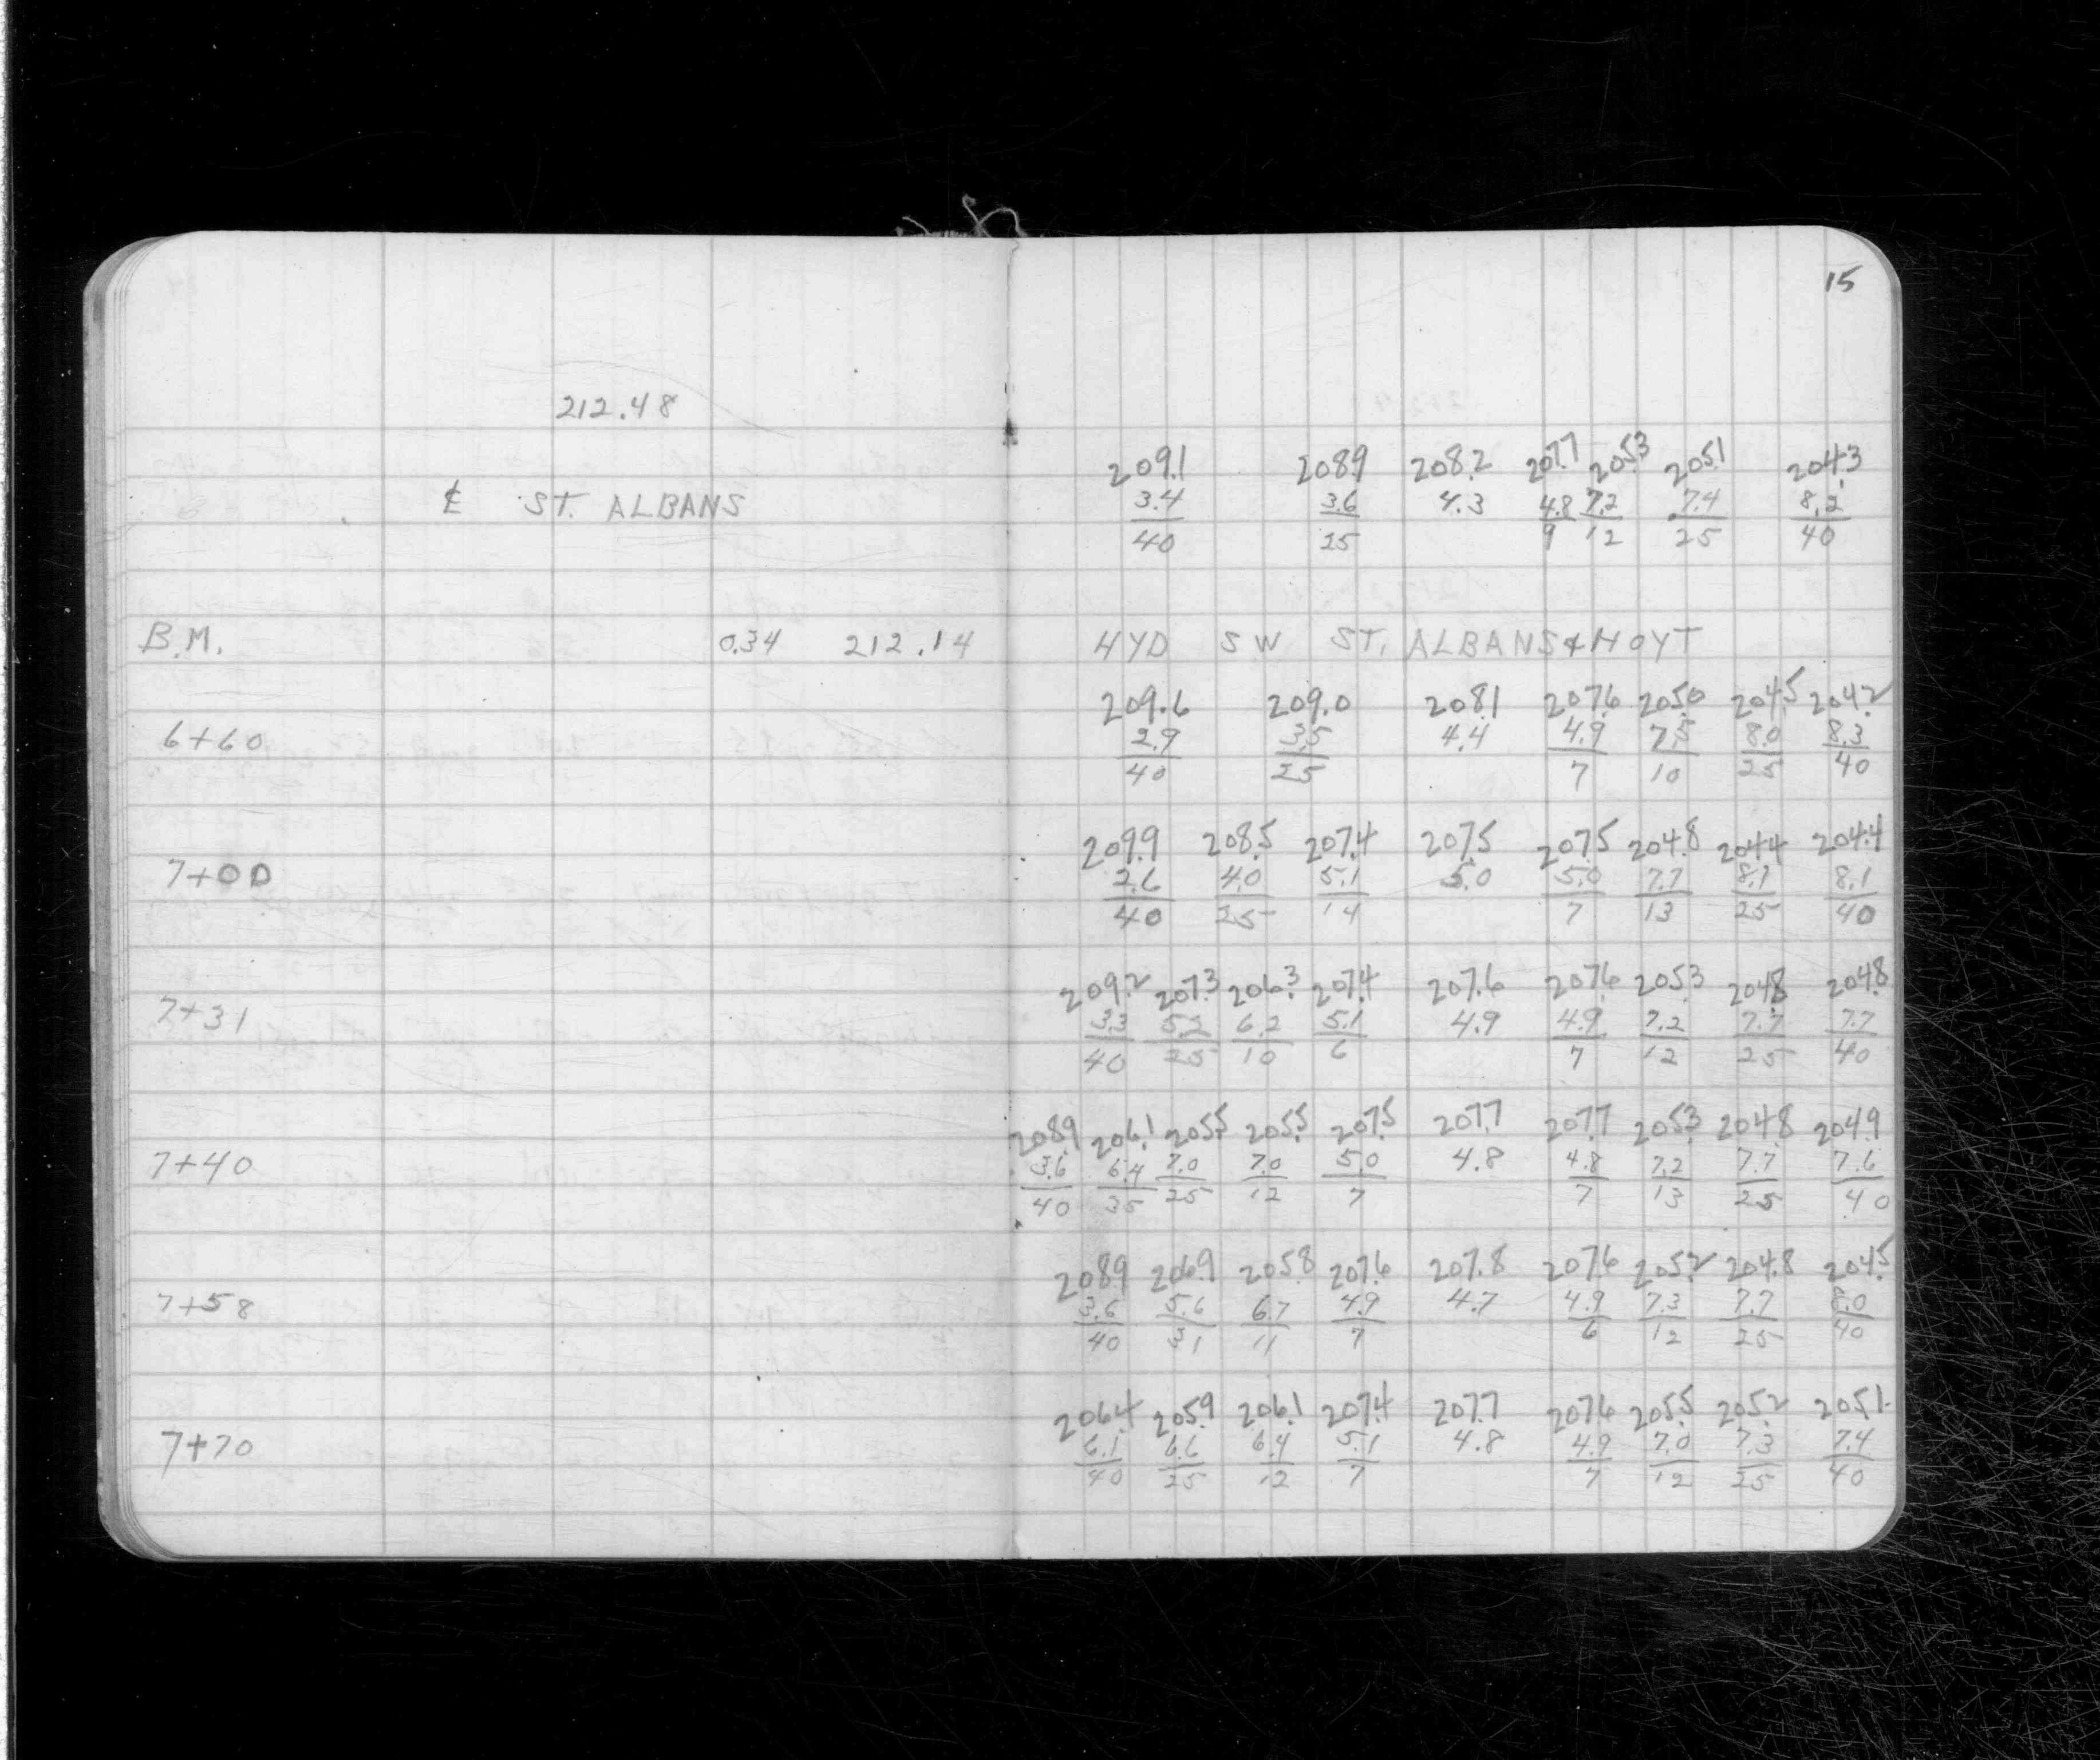 15
212.48
209.1 208.9 208.2 207.7 205.3 205.1 204.3
℄ ST. ALBANS 3.4 3.6 4.3 4.8 7.2 7.4 8.2
40 25 9 12 25 40
B.M. 0.34 212.14 HYD SW ST. ALBANS & HOYT
209.6 209.0 208.1 207.6 205.0 204.5 204.2
6+60 2.9 3.5 4.4 4.9 7.5 8.0 8.3
40 25 7 10 25 40
209.9 208.5 207.4 207.5 207.5 204.8 204.4 204.4
7+00 2.6 4.0 5.1 5.0 5.0 7.7 8.1 8.1
40 25 14 7 13 25 40
209.2 207.3 206.3 207.4 207.6 207.6 205.3 204.8 204.8
7+31 3.3 5.2 6.2 5.1 4.9 4.9 7.2 7.7 7.7
40 25 10 6 7 12 25 40
208.9 206.1 205.5 205.5 207.5 207.7 207.7 205.3 204.8 204.9
7+40 3.6 6.4 7.0 7.0 5.0 4.8 4.8 7.2 7.7 7.6
40 35 25 12 7 7 13 25 40
208.9 206.9 205.8 207.6 207.8 207.6 205.2 204.8 204.5
7+58 3.6 5.6 6.7 4.9 4.7 4.9 7.3 7.7 8.0
40 31 11 7 6 12 25 40
206.4 205.9 206.1 207.4 207.7 207.6 205.5 205.2 205.1
7+70 6.1 6.6 6.4 5.1 4.8 4.9 7.0 7.3 7.4
40 25 12 7 7 12 25 40